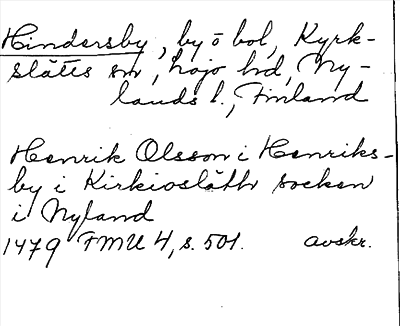 Hindersby, by ō bol, Kyrk-
slätts sn, Lojo hd, Ny-
lands l., Finland
Henrik Olsson i Henriks-
by i Kirkiosläth socken
i Nyland
1479 FMU 4, s. 501. avskr.